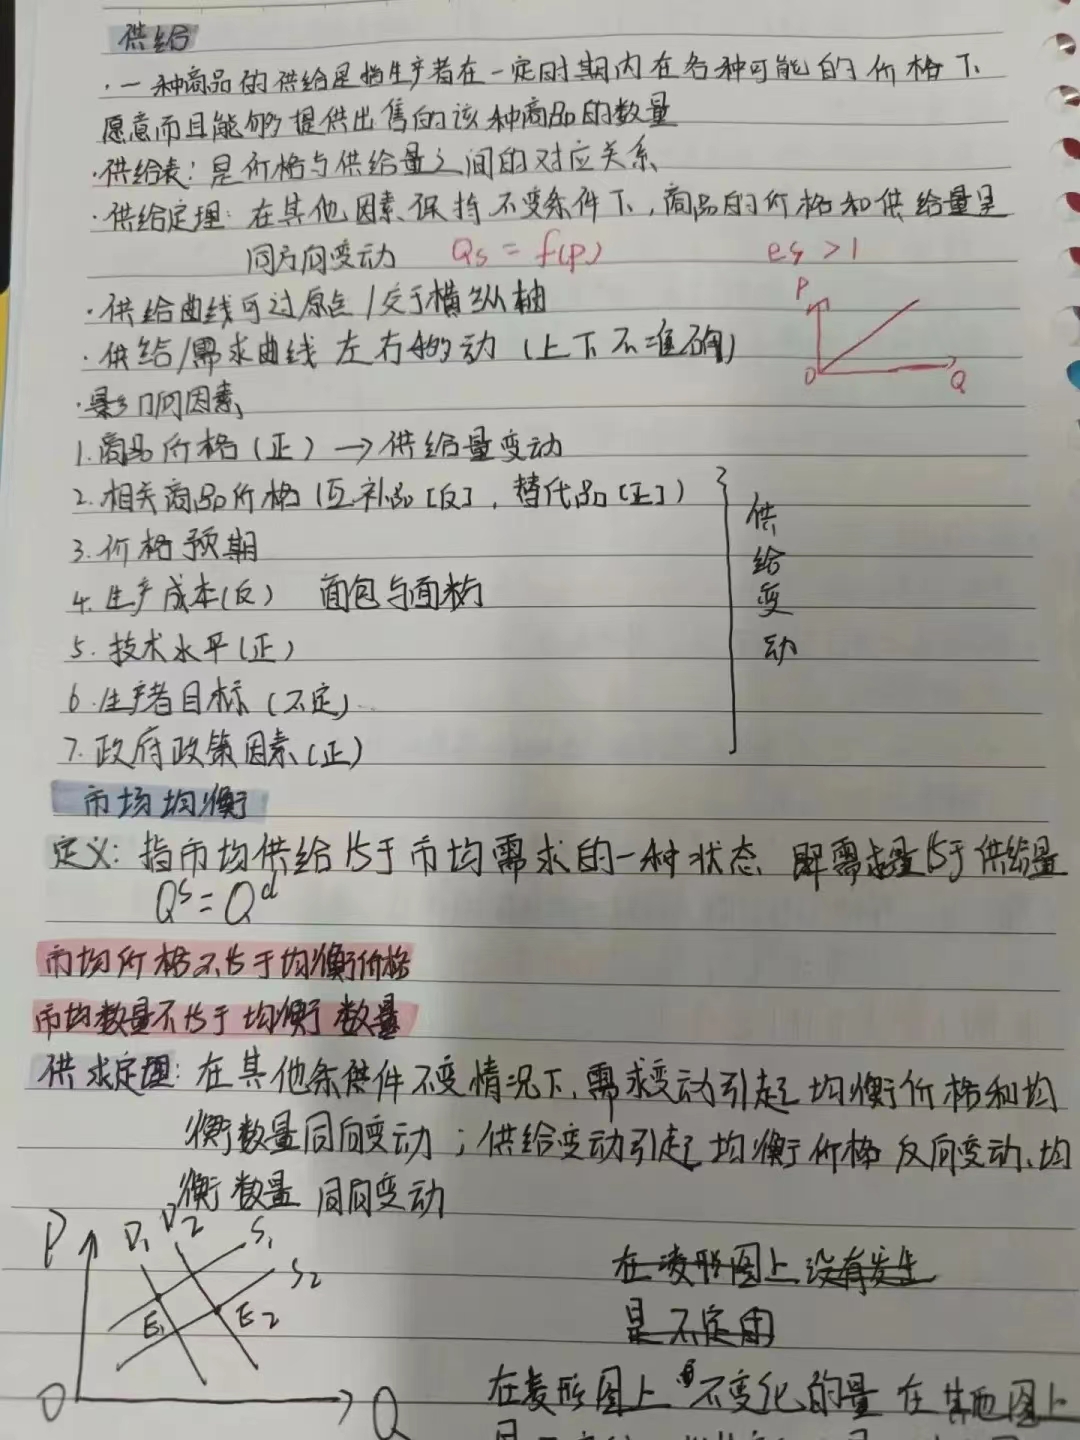 供给
·一种商品的供给是指生产者在一定时期内在各种可能的价格下
愿意而且能够提供出售的该种商品的数量
·供给表：是价格与供给量之间的对应关系
·供给定理：在其他因素保持不变条件下，商品的价格和供给量呈
同方向变动 Qs = f(P) es > 1
·供给曲线可过原点/交于横纵轴
P
·供给/需求曲线 左右移动（上下不准确）
O Q
·影响因素
1.商品价格（正）→供给量变动
2.相关商品价格（互补品[反]，替代品[正]）
3.价格预期
4.生产成本（反） 面包与面粉
5.技术水平（正）
6.生产者目标（不定）
7.政府政策因素（正）
供给变动
市场均衡
定义：指市均供给等于市均需求的一种状态 即需求量等于供给量
Qs = Qd
市均价格不等于均衡价格
市均数量不等于均衡数量
供求定理：在其他条件不变情况下，需求变动引起均衡价格和均
衡数量同向变动；供给变动引起均衡价格反向变动、均
衡数量同向变动
P D1 D2 S1
S2
E1 E2
O Q
在凌形图上没有发生
是不定的
在菱形图上 不变化的量 在其他图上